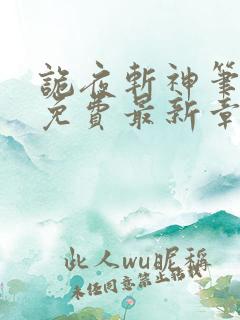 詭夜斬神筆
免費最新章
此人wu昵稱
未经同意禁止转载